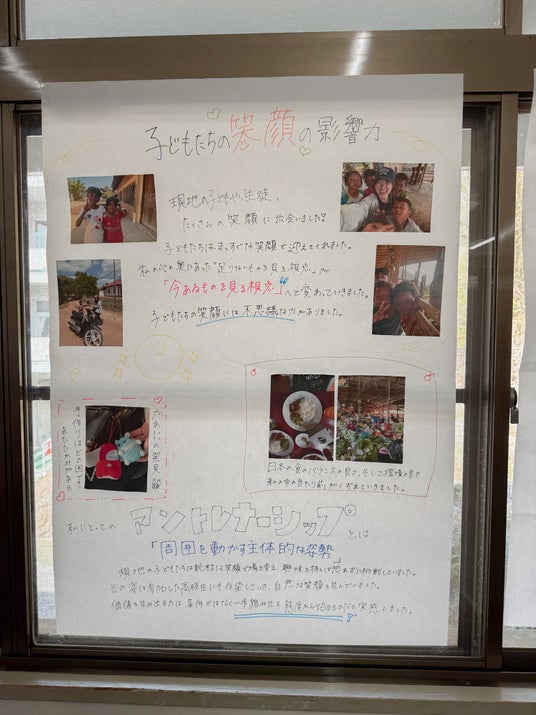 子どもたちの笑顔の影響力
現地の子どもや生徒、
たくさんの笑顔に出会いました。
子どもたちは、まっすぐな笑顔で迎えてくれました。
私たちの奥にあった「足りないものを見る視点」が
「今あるものを見る視点」へと変わっていきました。
子どもたちの笑顔には不思議な力がありました。
かわいいの発見
手作りはどの国でも
あたたかみがある
日本の食のバランスの良さ、そして環境の良さ
私の中の当たり前がくずれていきました。
私にとっての
アントレナーシップ
とは
「自分を動かす主体的な姿勢」
現地の子どもたちは純粋な笑顔で場を変え、興味を持てば恐れずに挑戦していました。
その姿は参加した高校生にも伝染していき、自然な笑顔を生んでいました。
価値を生み出す力は、条件ではなく一歩踏み出す
から始まるのだと実感しました。